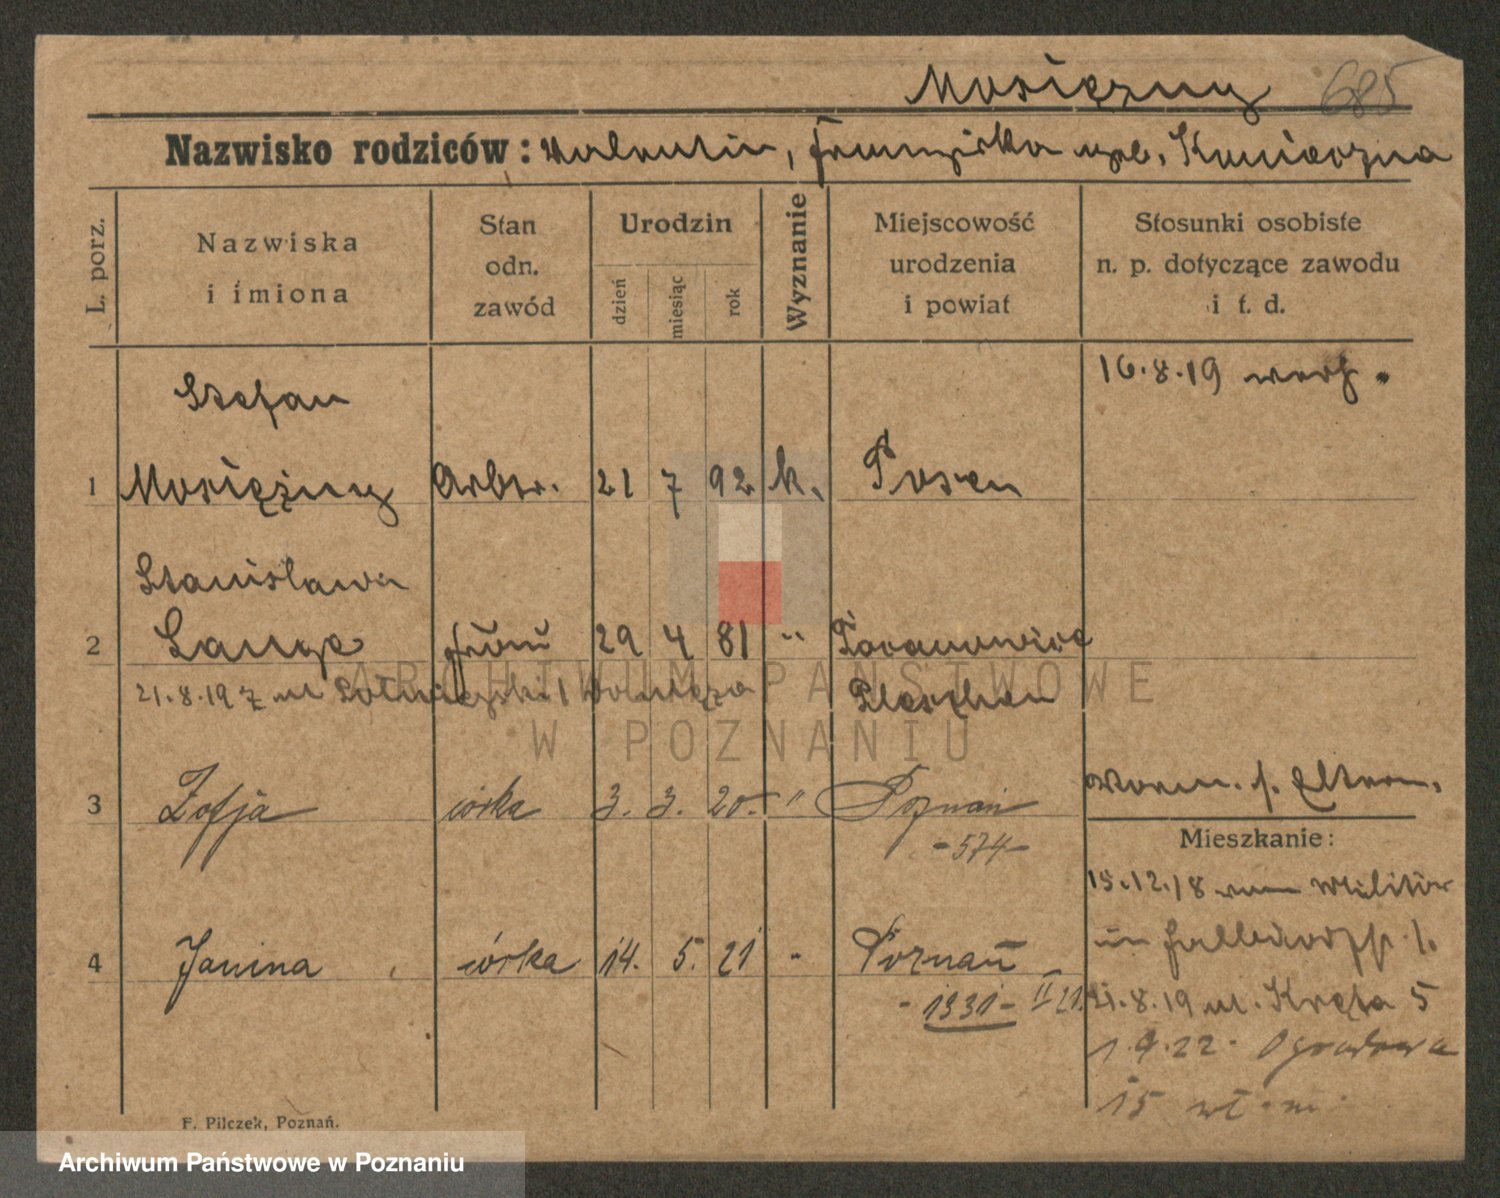 Mosiężny 685
Nazwisko rodziców: Valentin, Franziska Konieczna
L. porz.
Nazwiska
i imiona
Stan
odn.
zawód
Urodzin
dzień
miesiąc
rok
Wyznanie
Miejscowość
urodzenia
i powiat
Stosunki osobiste
n. p. dotyczące zawodu
i t. d.
16.8.19 verh.
Stefan
1 Mosiężny Arbtr. 21 7 92 k. Posen
Stanisława
2 Lange frau 29 4 81 " Taranowice
21.8.19 z ul. Dolna Pleschen
3 Zofja córka 3. 3. 20. " Poznań
-574-
4 Janina córka 14. 5. 21 " Poznań
-1331- II 21.
Mieszkanie:
15.12.18 vom Militär
21.8.19 ul. Kręta 5
1.9.22. Ogrodowa
15
F. Pilczek, Poznań.
ARCHIWUM PAŃSTWOWE
W POZNANIU
Archiwum Państwowe w Poznaniu